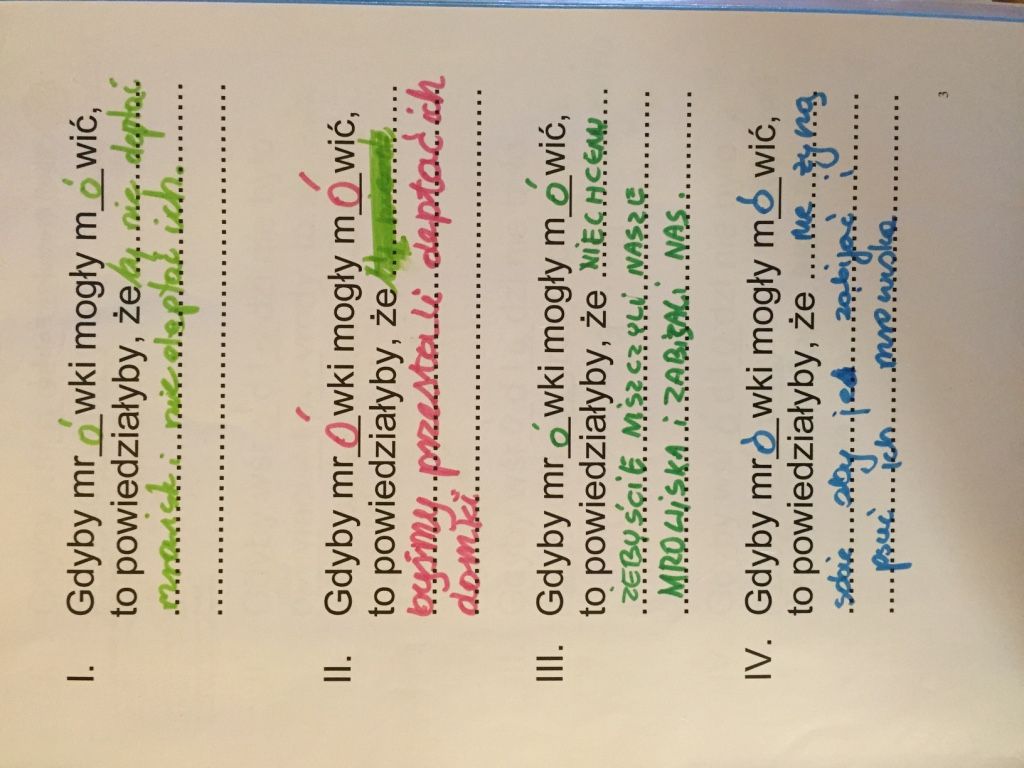 I. Gdyby mrówki mogły mówić,
to powiedziałyby, że by nie deptać
mrowisk i nie deptać ich.
II. Gdyby mrÓwki mogły mÓwić,
to powiedziałyby, że
byśmy przestali deptać ich
domki
III. Gdyby mrówki mogły mówić,
to powiedziałyby, że NIECHCEMY
ŻEBYŚCIE MISZCZYLI NASZE
MROWISKA i ZABIJALI NAS.
IV. Gdyby mrówki mogły mówić,
to powiedziałyby, że nie
aby zabijać i
psuć ich mrowiska
3